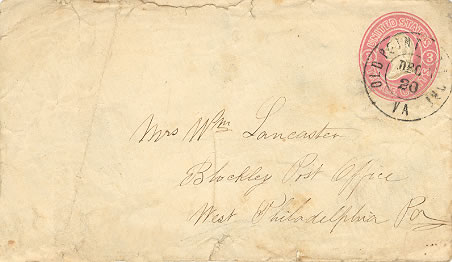 UNITED STATES
3
OLD POINT
DEC
20
VA
Mrs Wm Lancaster
Blockley Post Office
West Philadelphia Pa